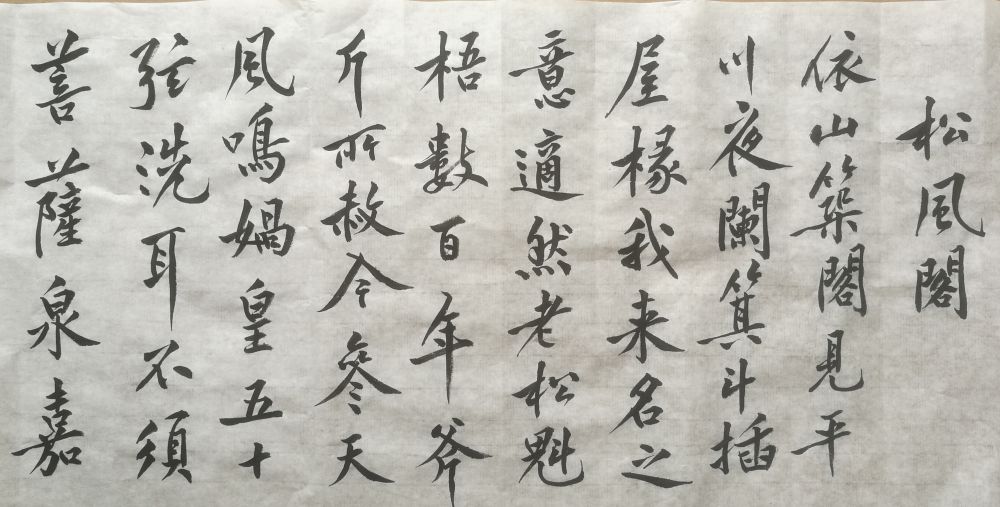 松風閣
依山築閣見平
川夜闌箕斗插
屋椽我来名之
意適然老松魁
梧數百年斧
斤所赦今參天
風鳴媧皇五十
弦洗耳不須
菩薩泉嘉